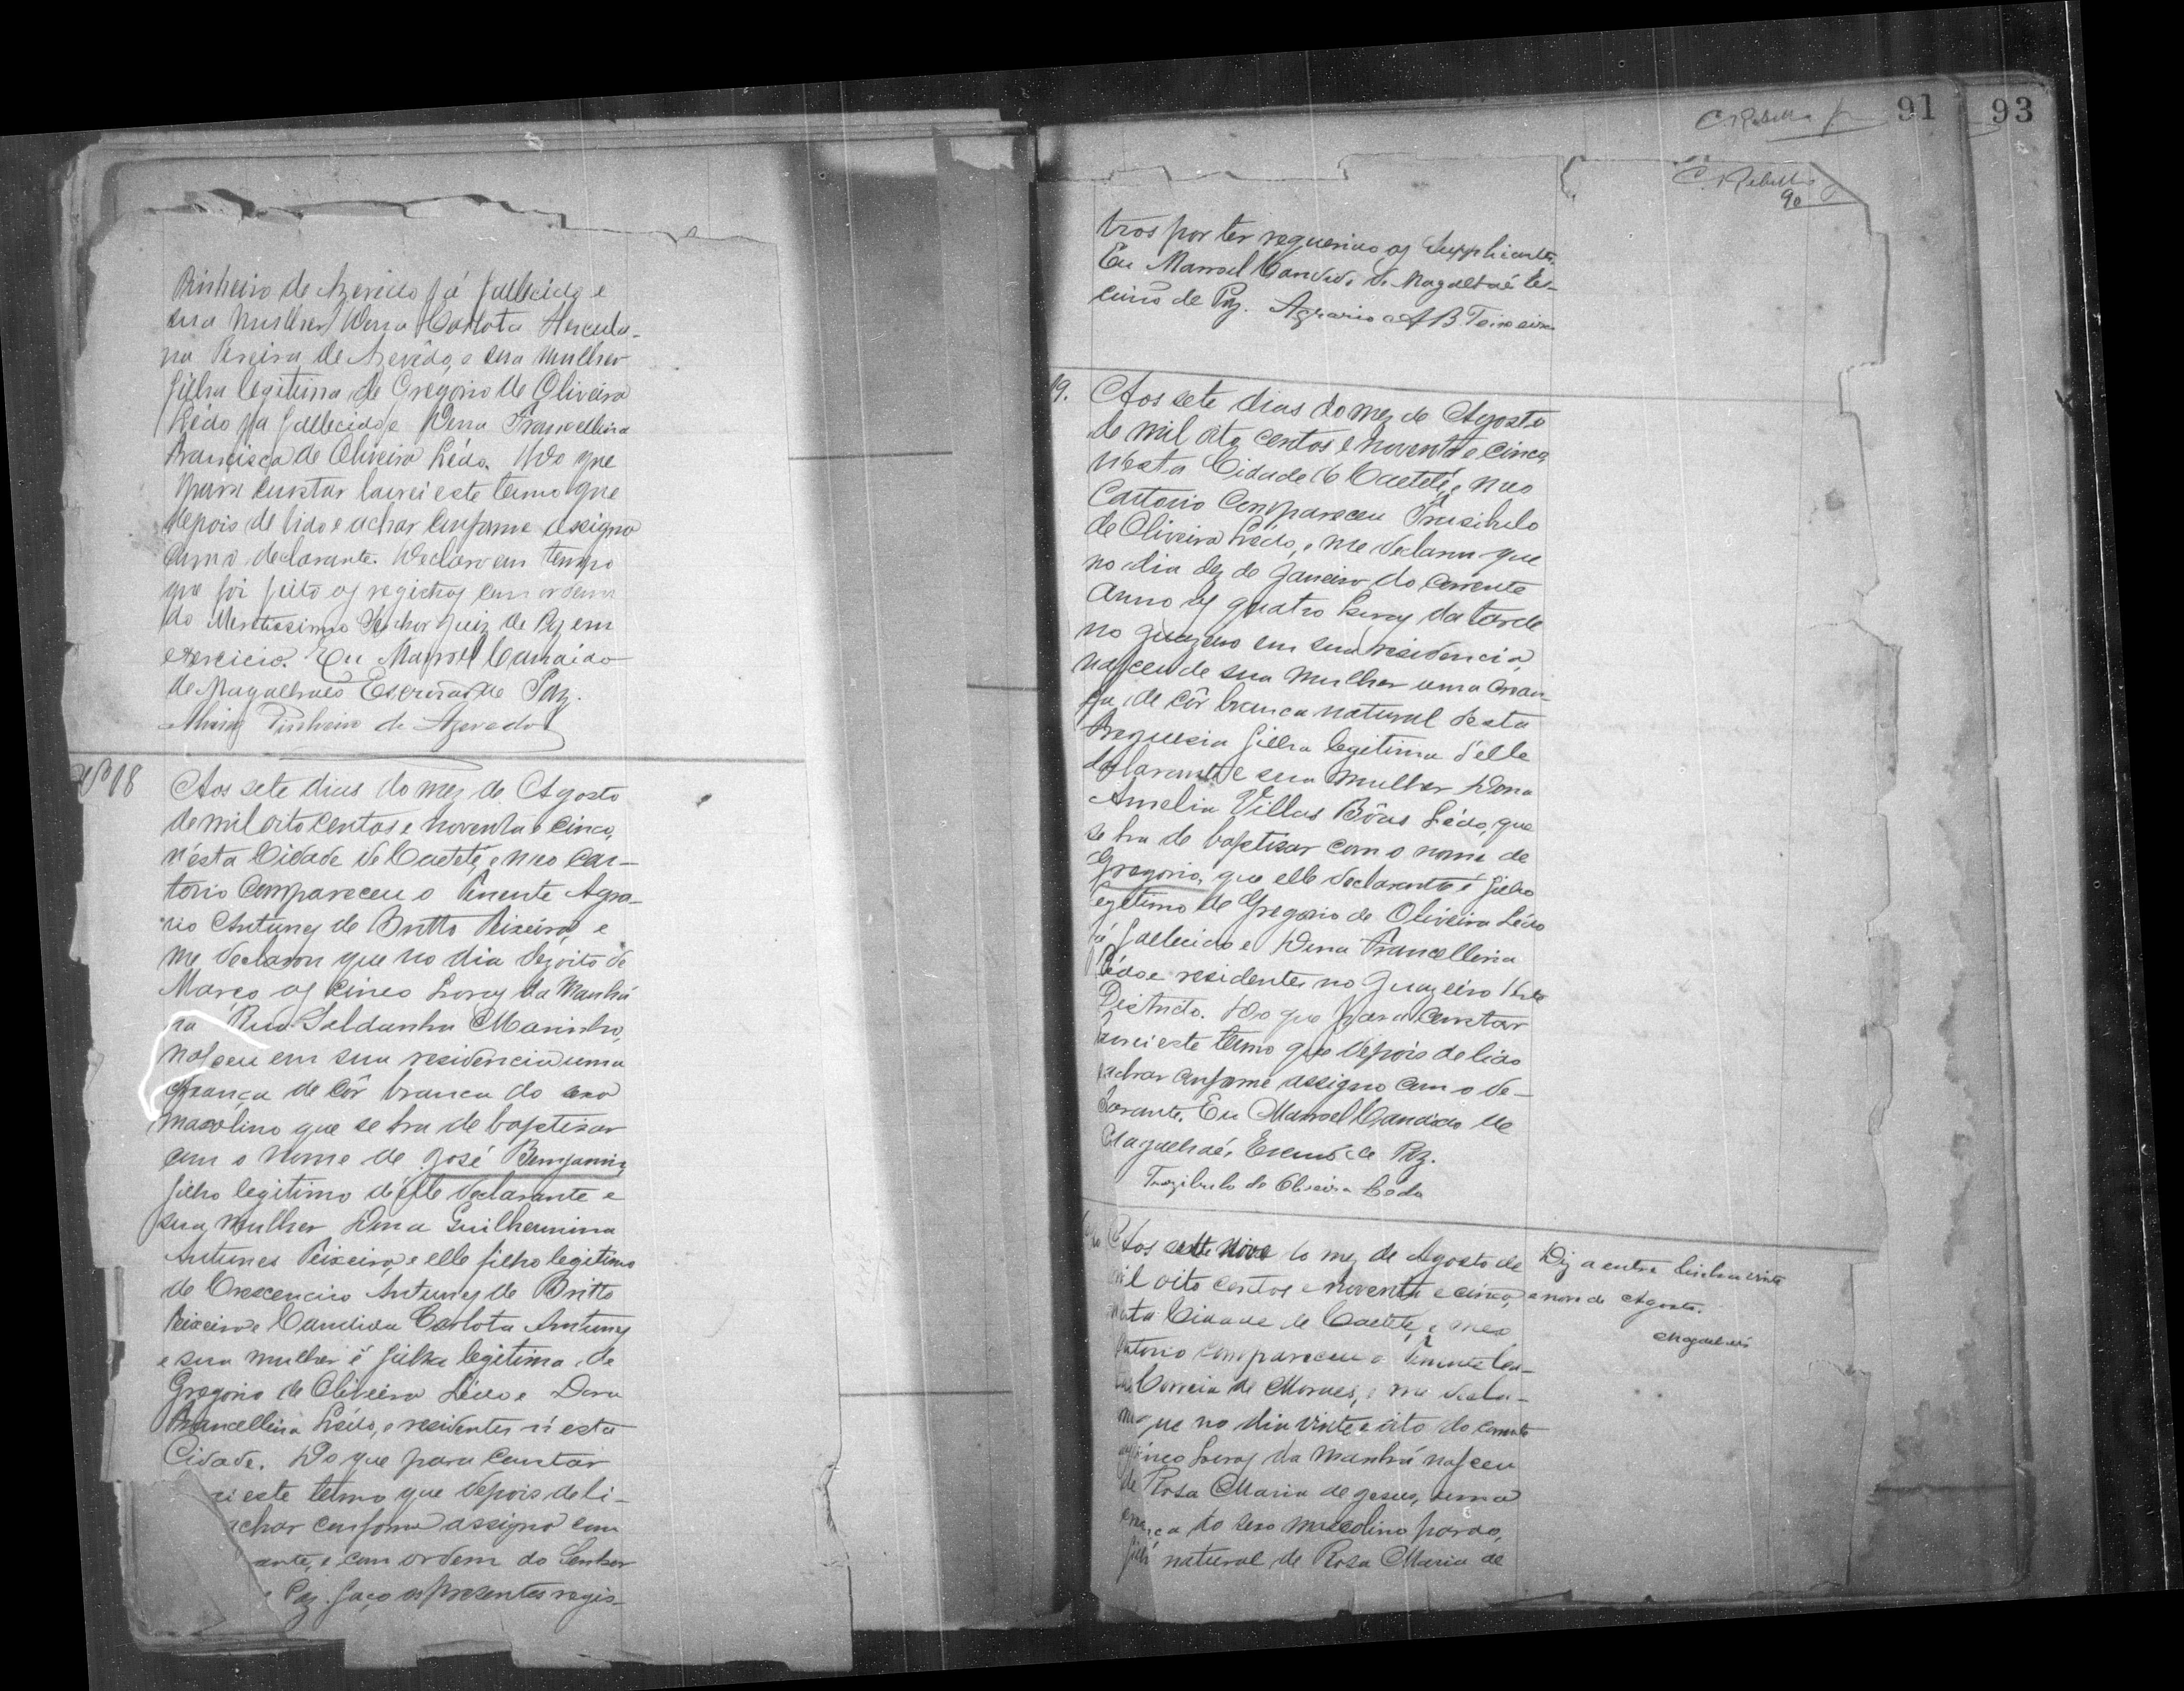 Pinheiro de Azevedo já fallecido e
sua mulher Dona Carlota Hercula-
na Pereira de Azevêdo, e sua mulher
filha legitima de Gregorio de Oliveira
Lédo já fallecido e Dona Francellina
Francisca de Oliveira Lédo. Do que
para constar lavrei este termo que
depois de lido e achar conforme assigno
com o declarante. Declaro em tempo
que foi feito os registros com ordem
do Meritissimo Senhor Juiz de Paz em
exercicio. Eu Manoel Candido
de Magalhães Escrivão de Paz.
Pinheiro de Azevedo
Nº 18
Aos sete dias do mez de Agosto
de mil oito centos e noventa e cinco,
n'esta Cidade de Caeteté, e meo Car-
torio Compareceu o Tenente Agra-
rio Antunes de Britto Teixeira, e
me declarou que no dia dezoito de
Março as cinco horas da manhã
na Rua Saldanha Marinho,
nasceu em sua residencia uma
criança de côr branca do sexo
masculino que se ha de baptisar
com o nome de José Benjamin,
filho legitimo d'elle declarante e
sua mulher Dona Guilhermina
Antunes Teixeira, e elle filho legitimo
de Crescencio Antunes de Britto
Teixeira e Candida Carlota Antunes
e sua mulher é filha legitima de
Gregorio de Oliveira Lédo e Dona
Francellina Lédo, e residentes n'esta
Cidade. Do que para constar
rei este termo que depois de li-
achar conforme assigno com
ante, e com ordem do Senhor
e Paz. faço os presentes regis-
91 93
C. Rebello
C. Rebello
90
tros por ter requerido os Supplicantes.
Eu Manoel Candido de Magalhães Es-
crivão de Paz. Agrario A B Teixeira
19.
Aos sete dias do mez de Agosto
de mil oito centos e noventa e cinco,
nesta Cidade de Caeteté, e meo
Cartorio Compareceu Trasibulo
de Oliveira Lédo, e me declarou que
no dia dez de Janeiro do corrente
anno as quatro horas da tarde
no Juazeiro em sua residencia,
nasceu de sua mulher uma crian-
ça, de côr branca natural desta
freguesia filha legitima d'elle
declarante e sua mulher Dona
Amelia Villas Bôas Lédo, que
se ha de baptisar com o nome de
Gregorio, que elle declarante é filho
legitimo de Gregorio de Oliveira Lédo
já fallecido e Dona Francellina
Lédo e residentes no Juazeiro deste
Districto. Do que para constar
lavrei este termo que depois de lido
e achar conforme assigno com o de-
clarante. Eu Manoel Candido de
Magalhães, Escrivão de Paz.
Trazibulo de Oliveira Ledo
20
Aos nove do mez de Agosto de
mil oito centos e noventa e cinco,
nesta Cidade de Caeteté, e meo
Cartorio compareceu o Tenente
Correia de Moraes, e me decla-
rou que no dia vinte e oito do corrente
as cinco horas da manhã nasceu
de Rosa Maria de Jesus, uma
criança do sexo masculino pardo,
filho natural de Rosa Maria de
Diz a entre linha vinte
e nove de Agosto.
Magalhães